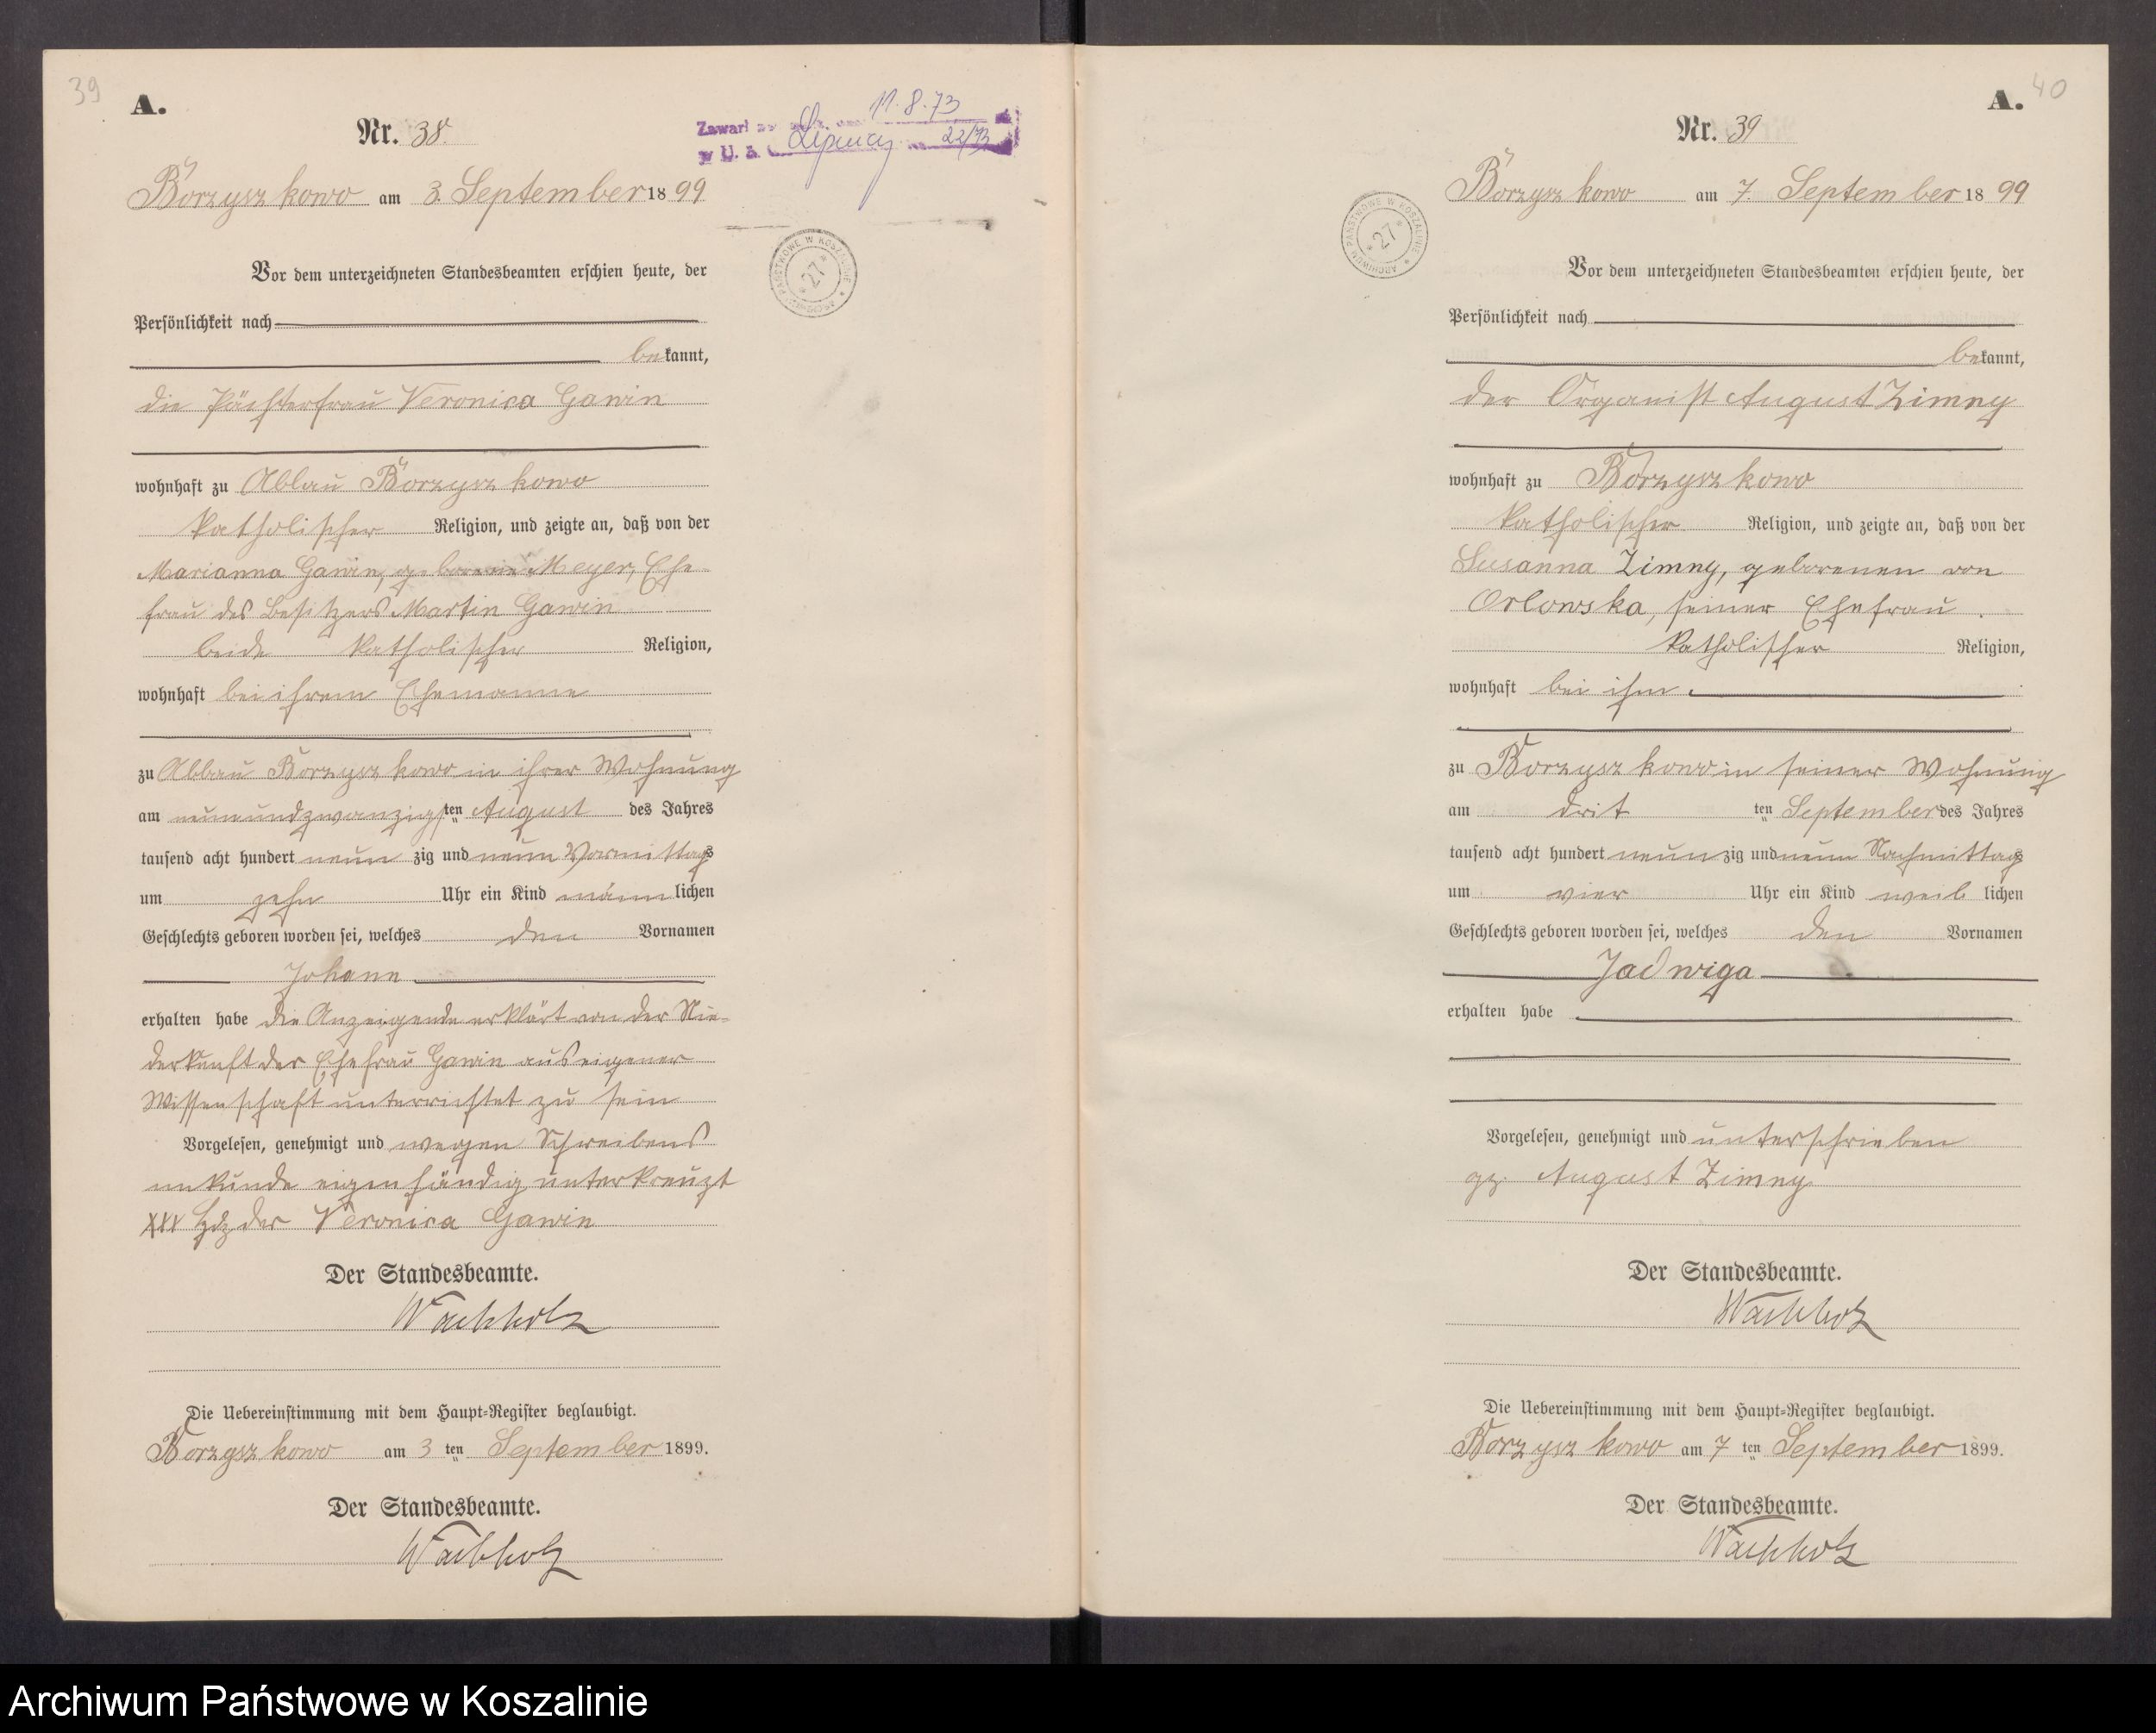 39
A.
Nr. 38.
11.8.73
Zawarł
w U. S. Lipnicy 22/73
Borzyszkowo am 3. September 1899
ARCHIWUM PAŃSTWOWE W KOSZALINIE * 27 *
Vor dem unterzeichneten Standesbeamten erschien heute, der
Persönlichkeit nach
bekannt,
die Pächterfrau Veronica Gawin
wohnhaft zu Abbau Borzyszkowo
katholischer Religion, und zeigte an, daß von der
Marianna Gawin, geborene Meyer, Ehe-
frau des Besitzers Martin Gawin
beide katholischer Religion,
wohnhaft bei ihrem Ehemanne
zu Abbau Borzyszkowo in ihrer Wohnung
am neunundzwanzigsten August des Jahres
tausend acht hundert neunzig und neun Vormittags
um zehn Uhr ein Kind männlichen
Geschlechts geboren worden sei, welches den Vornamen
Johann
erhalten habe die Anzeigende erklärt von der Nie-
derkunft der Ehefrau Gawin aus eigener
Wissenschaft unterrichtet zu sein
Vorgelesen, genehmigt und wegen Schreibens
unkunde eigenhändig unterkreuzt
XXX Hdz der Veronica Gawin
Der Standesbeamte.
Wachholz
Die Uebereinstimmung mit dem Haupt-Register beglaubigt.
Borzyszkowo am 3ten September 1899.
Der Standesbeamte.
Wachholz
40
A.
Nr. 39
Borzyszkowo am 7. September 1899
ARCHIWUM PAŃSTWOWE W KOSZALINIE * 27 *
Vor dem unterzeichneten Standesbeamten erschien heute, der
Persönlichkeit nach
bekannt,
der Organist August Zimny
wohnhaft zu Borzyszkowo
katholischer Religion, und zeigte an, daß von der
Susanna Zimny, geborenen von
Orlowska, seiner Ehefrau
katholischer Religion,
wohnhaft bei ihm
zu Borzyszkowo in seiner Wohnung
am dritten September des Jahres
tausend acht hundert neunzig und neun Nachmittags
um vier Uhr ein Kind weiblichen
Geschlechts geboren worden sei, welches den Vornamen
Jadwiga
erhalten habe
Vorgelesen, genehmigt und unterschrieben
gz. August Zimny
Der Standesbeamte.
Wachholz
Die Uebereinstimmung mit dem Haupt-Register beglaubigt.
Borzyszkowo am 7ten September 1899.
Der Standesbeamte.
Wachholz
Archiwum Państwowe w Koszalinie